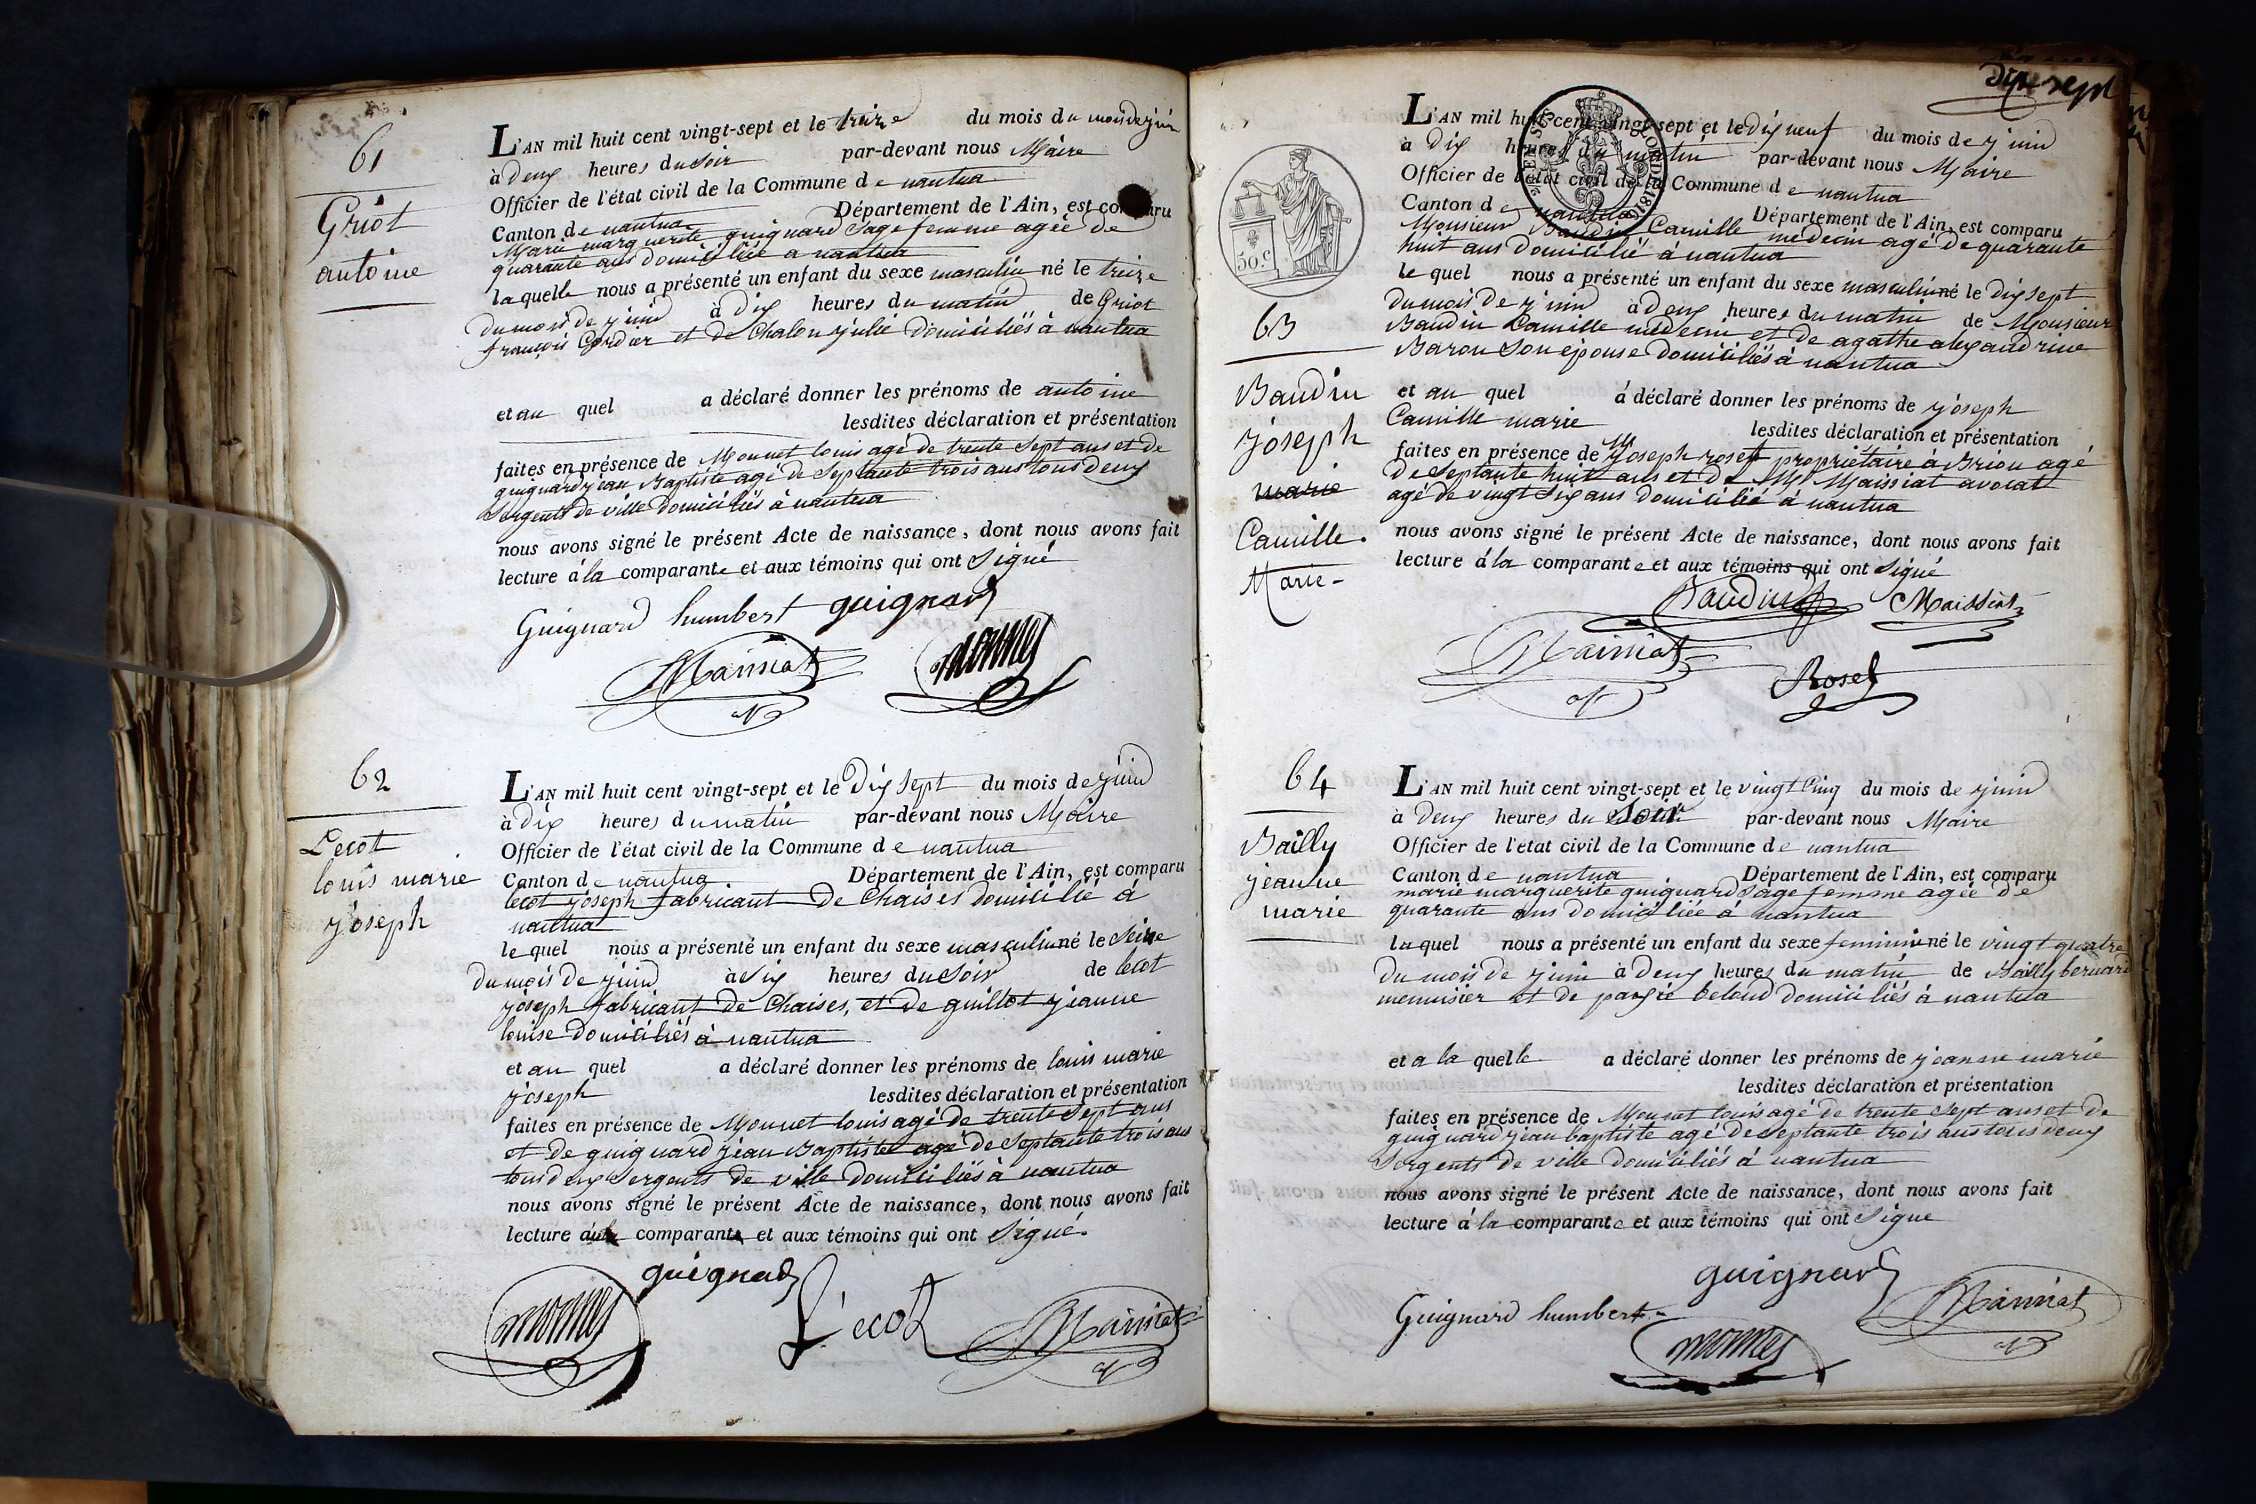 61
Griot
antoine
L'AN mil huit cent vingt-sept et le treize du mois du mois de juin
à deux heures du soir par-devant nous Maire
Officier de l'état civil de la Commune de nantua
Canton de nantua Département de l'Ain, est comparu
Marie marguerite guignard Sage femme agée de
quarante ans domiciliée a nantua
laquelle nous a présenté un enfant du sexe masculin né le treize
du mois de juin à dix heures du matin de Griot
françois Cordier et de Chalon julie domiciliés à nantua
et au quel a déclaré donner les prénoms de antoine
lesdites déclaration et présentation
faites en présence de Monnet louis agé de trente Sept ans et de
guignard jean Baptiste agé de Septante trois ans tous deux
Sergents de ville domiciliés à nantua
nous avons signé le présent Acte de naissance, dont nous avons fait
lecture à la comparante et aux témoins qui ont Signé
Guignard humbert guignard
Maissiat monnet
62
Lecot
louis marie
joseph
L'AN mil huit cent vingt-sept et le Dix Sept du mois de juin
à dix heures du matin par-devant nous Maire
Officier de l'état civil de la Commune de nantua
Canton de nantua Département de l'Ain, est comparu
lecot joseph fabricant de Chaises domicilié à
nantua
le quel nous a présenté un enfant du sexe masculin né le Seize
du mois de juin à Six heures du Soir de lecot
joseph fabricant de Chaises, et de guillot jeanne
louise domiciliés à nantua
et au quel a déclaré donner les prénoms de louis marie
joseph lesdites déclaration et présentation
faites en présence de Monnet louis agé de trente Sept ans
et de guignard jean Baptiste agé de Septante trois ans
tous deux Sergents de ville domiciliés à nantua
nous avons signé le présent Acte de naissance, dont nous avons fait
lecture au comparant et aux témoins qui ont Signé.
guignard
monnet Lecot Maissiat
dix sept
L'AN mil huit cent vingt-sept et le dix neuf du mois de juin
à dix heures du matin par-devant nous Maire
Officier de l'état civil de la Commune de nantua
Canton de nantua Département de l'Ain, est comparu
Monsieur Baudin Camille médecin agé de quarante
huit ans domicilié à nantua
le quel nous a présenté un enfant du sexe masculin né le dix sept
du mois de juin à deux heures du matin de Monsieur
Baudin Camille médecin et de agathe alexandrine
Baron Son épouse domiciliés à nantua
50.c
63
Baudin
joseph
marie
Camille.
Marie-
et au quel à déclaré donner les prénoms de joseph
Camille marie lesdites déclaration et présentation
faites en présence de Mr joseph roset propriétaire à Brion agé
de Septante huit ans et de Mr Maissiat avocat
agé de vingt Six ans domicilié à nantua
nous avons signé le présent Acte de naissance, dont nous avons fait
lecture à la comparante et aux témoins qui ont Signé
Baudin Maissiat
Maissiat Roset
64
Bailly
jeanne
marie
L'AN mil huit cent vingt-sept et le vingt Cinq du mois de juin
à deux heures du Soir par-devant nous Maire
Officier de l'état civil de la Commune de nantua
Canton de nantua Département de l'Ain, est comparu
marie marguerite guignard Sage femme agée de
quarante ans domiciliée à nantua
laquelle nous a présenté un enfant du sexe feminin né le vingt quatre
du mois de juin à deux heures du matin de Bailly bernard
menuisier et de domiciliés à nantua
et a la quelle a déclaré donner les prénoms de jeanne marie
lesdites déclaration et présentation
faites en présence de Monnet louis agé de trente Sept ans et de
guignard jean baptiste agé de Septante trois ans tous deux
Sergents de ville domiciliés à nantua
nous avons signé le présent Acte de naissance, dont nous avons fait
lecture à la comparante et aux témoins qui ont Signé
guignard
Guignard humbert Maissiat
monnet